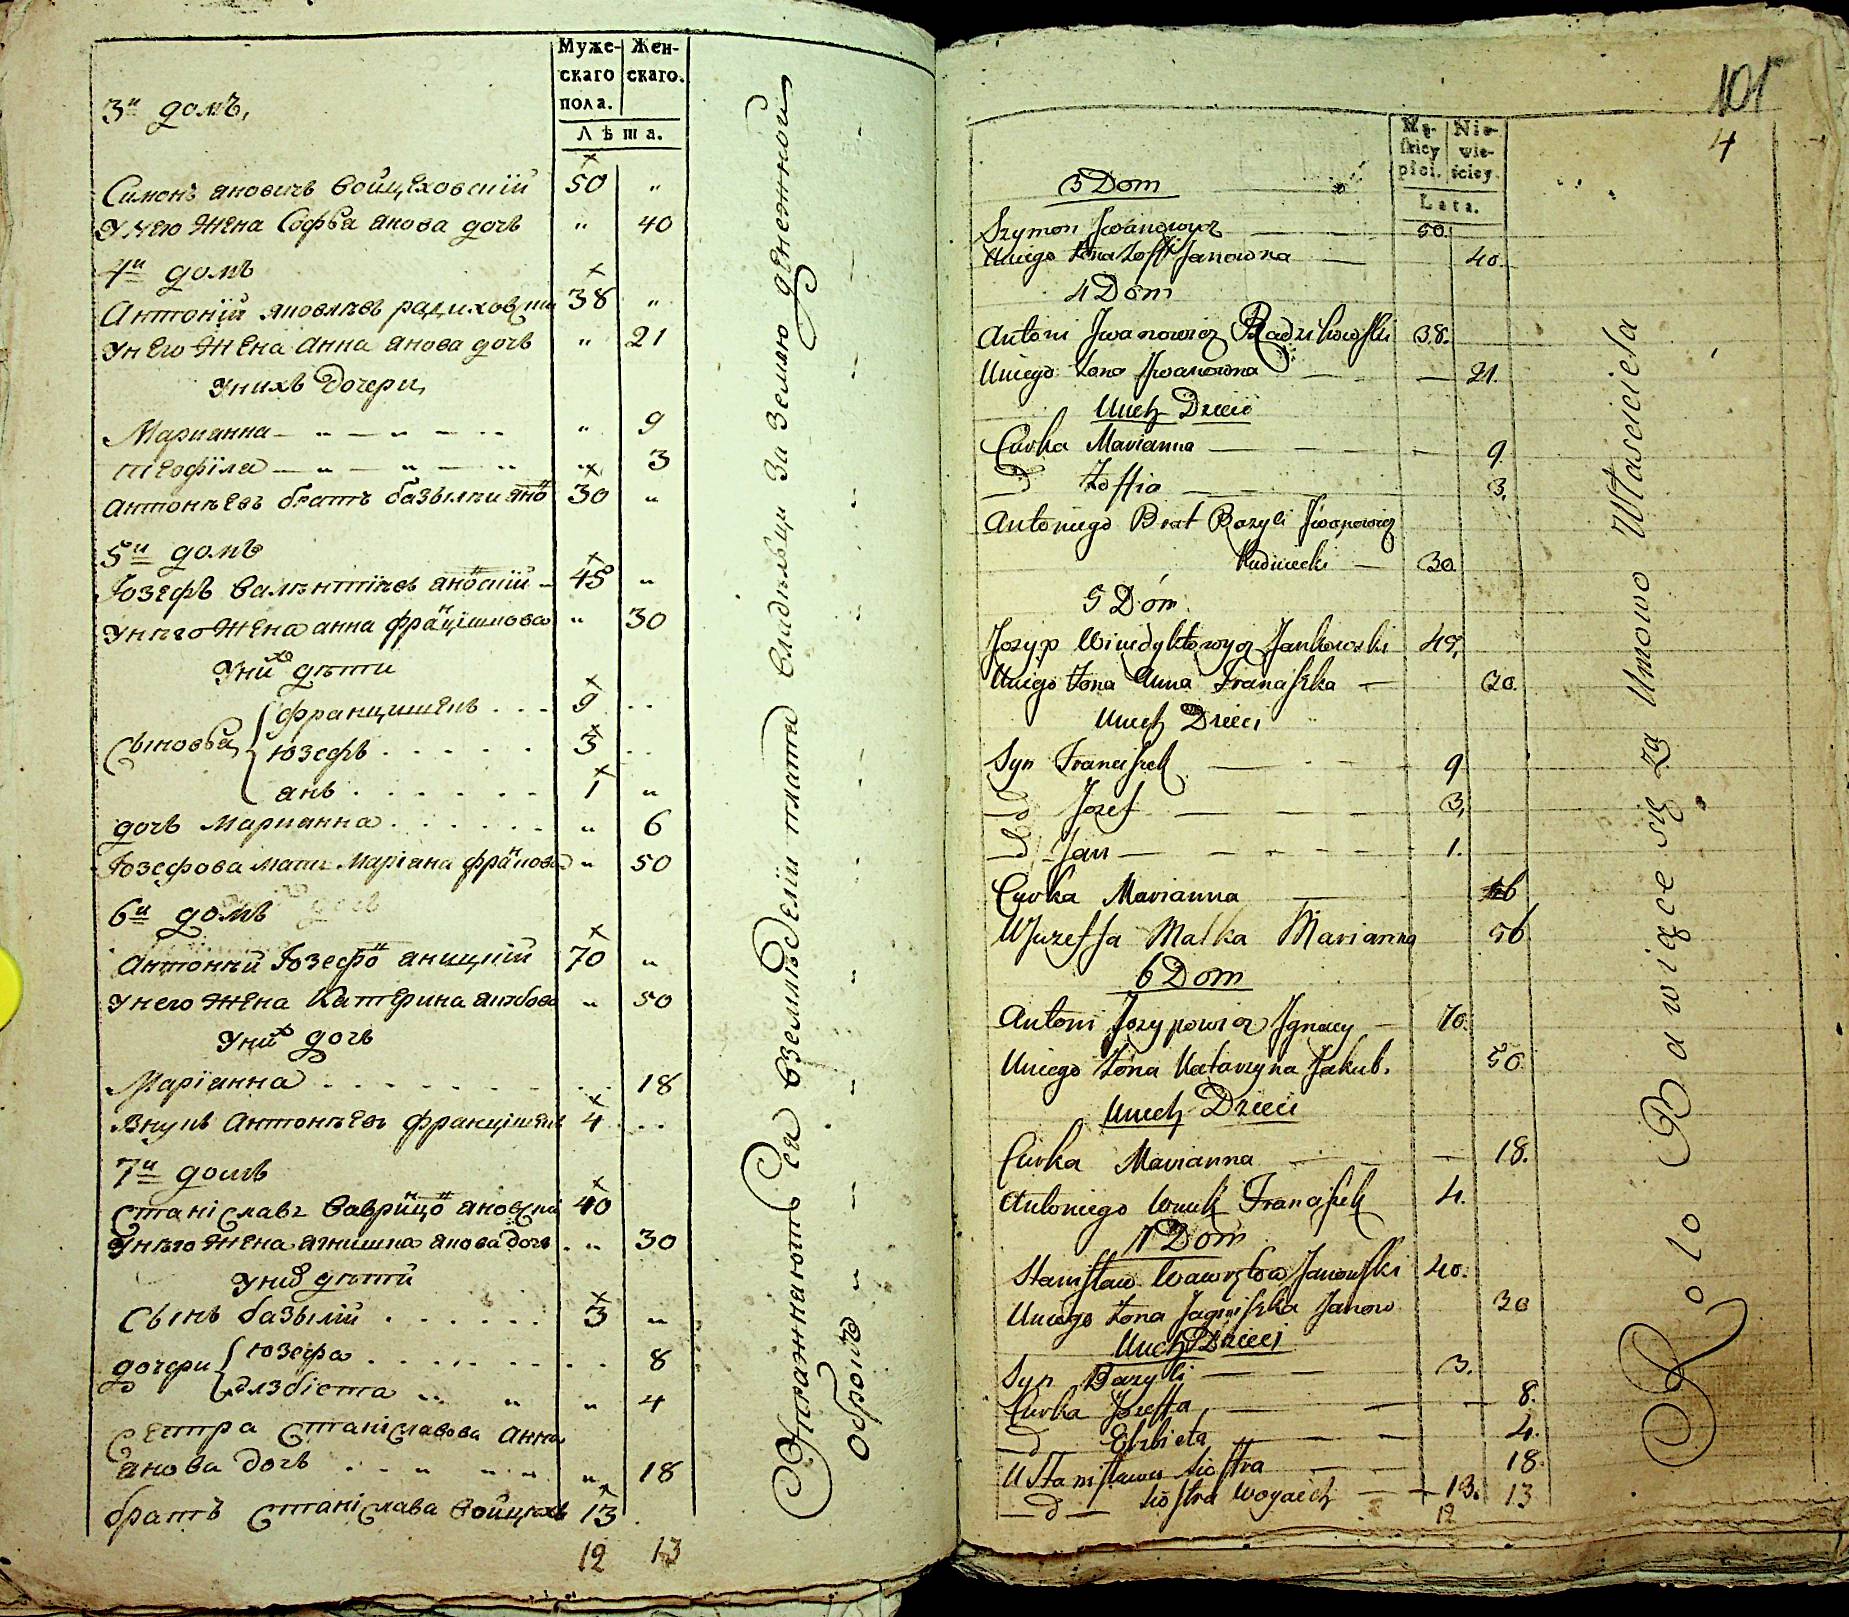 Муже- Жен-
скаго скаго.
пола.
Лѣта.
3й домъ,
Симонъ яновичъ войцеховскій 50 „
У него жена Софья янова дочь „ 40
4й домъ
Антоній яковлевъ 38 „
У него жена анна янова дочь „ 21
У нихъ дочери
Марианна „ 9
теофила „ 3
антонѣевъ братъ базылій яно 30 „
5й домъ
Іозефъ 45 „
У него жена анна францишкова „ 30
У них дѣти
сыновья францишекъ 9
юзефъ 3
янъ 1 „
дочь Марианна „ 6
Іозефова мать Маріана „ 50
6й домъ
Антоній Іозефо яницкій 70 „
У него жена Катерина якубова „ 50
У них дочь
Маріанна 18
Внукъ Антонѣевъ францишекъ 4
7й домъ
Станіславъ 40
У него жена агнишка янова дочь „ 30
У них дѣти
Сынъ базылій 3 „
дочери юзефа 8
до элзбіета „ „ „ 4
сестра Станіславова анна
янова дочь „ 18
братъ Станіслава войцехъ 13
12 13
Упражняются въ земледѣліи плата владѣльцу За Землю денежной
оброчъ
101
4
Mę- Nie-
skiey wie-
płci. ściey.
Lata.
3 Dom
Szymon Jwanowycz 50.
Uniego żona Zoffi Janowna 40.
4 Dom
Antoni Jwanowicz Radzikowski 38.
Uniego żona Jwanowna 21.
Unich Dzieci
Curka Marianna 9.
D Zoffia 3.
Antoniego Brat Bazyli Jwanowicz
30.
5 Dóm
Jozyp Winedyktowycz Jankowski 45,
Uniego żona Anna Franciszka 30.
Unich Dzieci
Syn Franciszek 9
D Jozef 3,
D Jan 1.
Curka Marianna 6
UJuzeffa Matka Marianna 50
6 Dom
Antoni Jozypowicz Jgnacy 70.
Uniego żóna Katarzyna Jakub. 50.
Unich Dzieci
Curka Marianna 18.
Antoniego Wnuk Franciszek 4.
7 Dom
Stanisław Wawrzyców Janowski 40.
Uniego żona Jagniszka Janow 30
Unich Dzieci
Syn Bazyli 3.
Curka Jozeffa 8.
D Elzbieta 4.
UStanisława Siostra 18.
D Siostra Woyciech 13. 13
12
Rolo Bawiące się za Umowo Własciciela